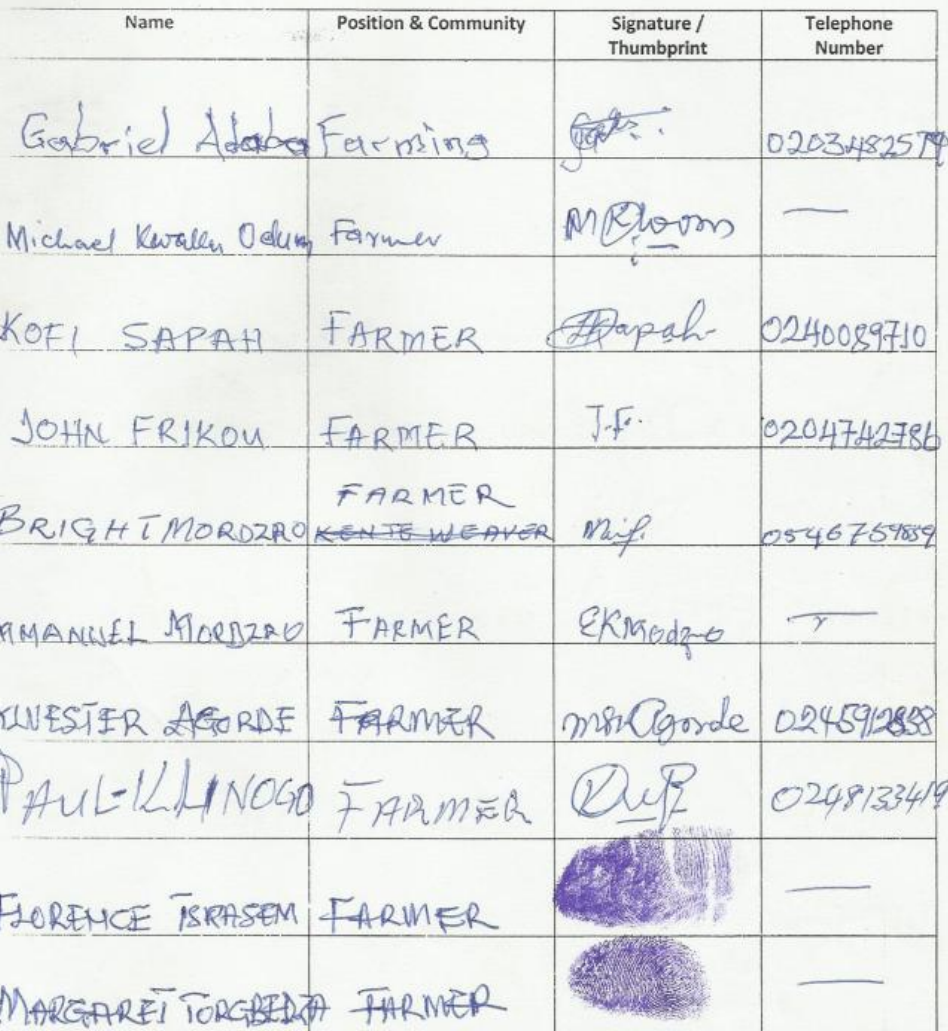 Name Position & Community Signature / Thumbprint Telephone Number
Gabriel Adabo Farming 0203482579
Michael Kwaku Odum Farmer —
KOFI SAPAH FARMER Sapah 0240089710
JOHN FRIKOU FARMER J.F. 0204742786
FARMER
BRIGHT MORDZRO KENTE WEAVER 0546759859
MMANUEL MORDZRO FARMER EKModzro —
LVESTER AGORDE FARMER Agorde
PAUL FARMER 0248133419
FLORENCE FARMER —
MARGARET FARMER —